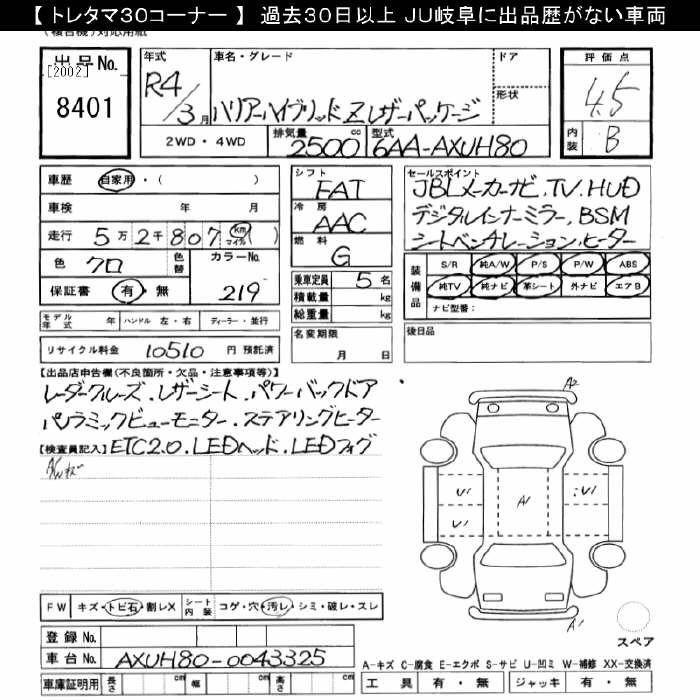 【 トレタマ30コーナー 】 過去30日以上 JU岐阜に出品歴がない車両
出品No. 8401
[2002]
年式 R4/3月
車名・グレード ハリアーハイブリッド Z レザーパッケージ
ドア
形状
評価点 4.5
内装 B
2WD・4WD 排気量 2500 cc 型式 6AA-AXUH80
車歴 自家用・( )
車検 年 月
走行 5万2千807 km マイル
色 クロ 色替 カラーNo. 219
保証書 有・無
シフト FAT
冷房 AAC
燃料 G
乗車定員 5名
積載量 kg
総重量 kg
セールスポイント
JBLメーカーナビ.TV.HUD
デジタルインナーミラー.BSM
シートベンチレーション.ヒーター
装備品 S/R 純A/W P/S P/W ABS
純TV 純ナビ 革シート 外ナビ エアB
ナビ型番:
モデル年式 年 ハンドル 左・右 ディーラー・並行
名変期限 月 日
後日品
リサイクル料金 10510 円 預託済
【出品店申告欄(不良箇所・欠品・注意事項等)】
レーダークルーズ.レザーシート.パワーバックドア
パノラミックビューモニター.ステアリングヒーター
【検査員記入】 ETC2.0.LEDヘッド.LEDフォグ
A/Wキズ
A2
U1 U1 A1 :U1
A1
FW キズ・トビ石・割レX シート内装 コゲ・穴・汚レ・シミ・破レ・スレ
登録No.
車台No. AXUH80-0043325
スペア
A-キズ C-腐食 E-エクボ S-サビ U-凹ミ W-補修 XX-交換済
車庫証明用 長さ cm 幅 cm 高さ cm 工具 有・無 ジャッキ 有・無